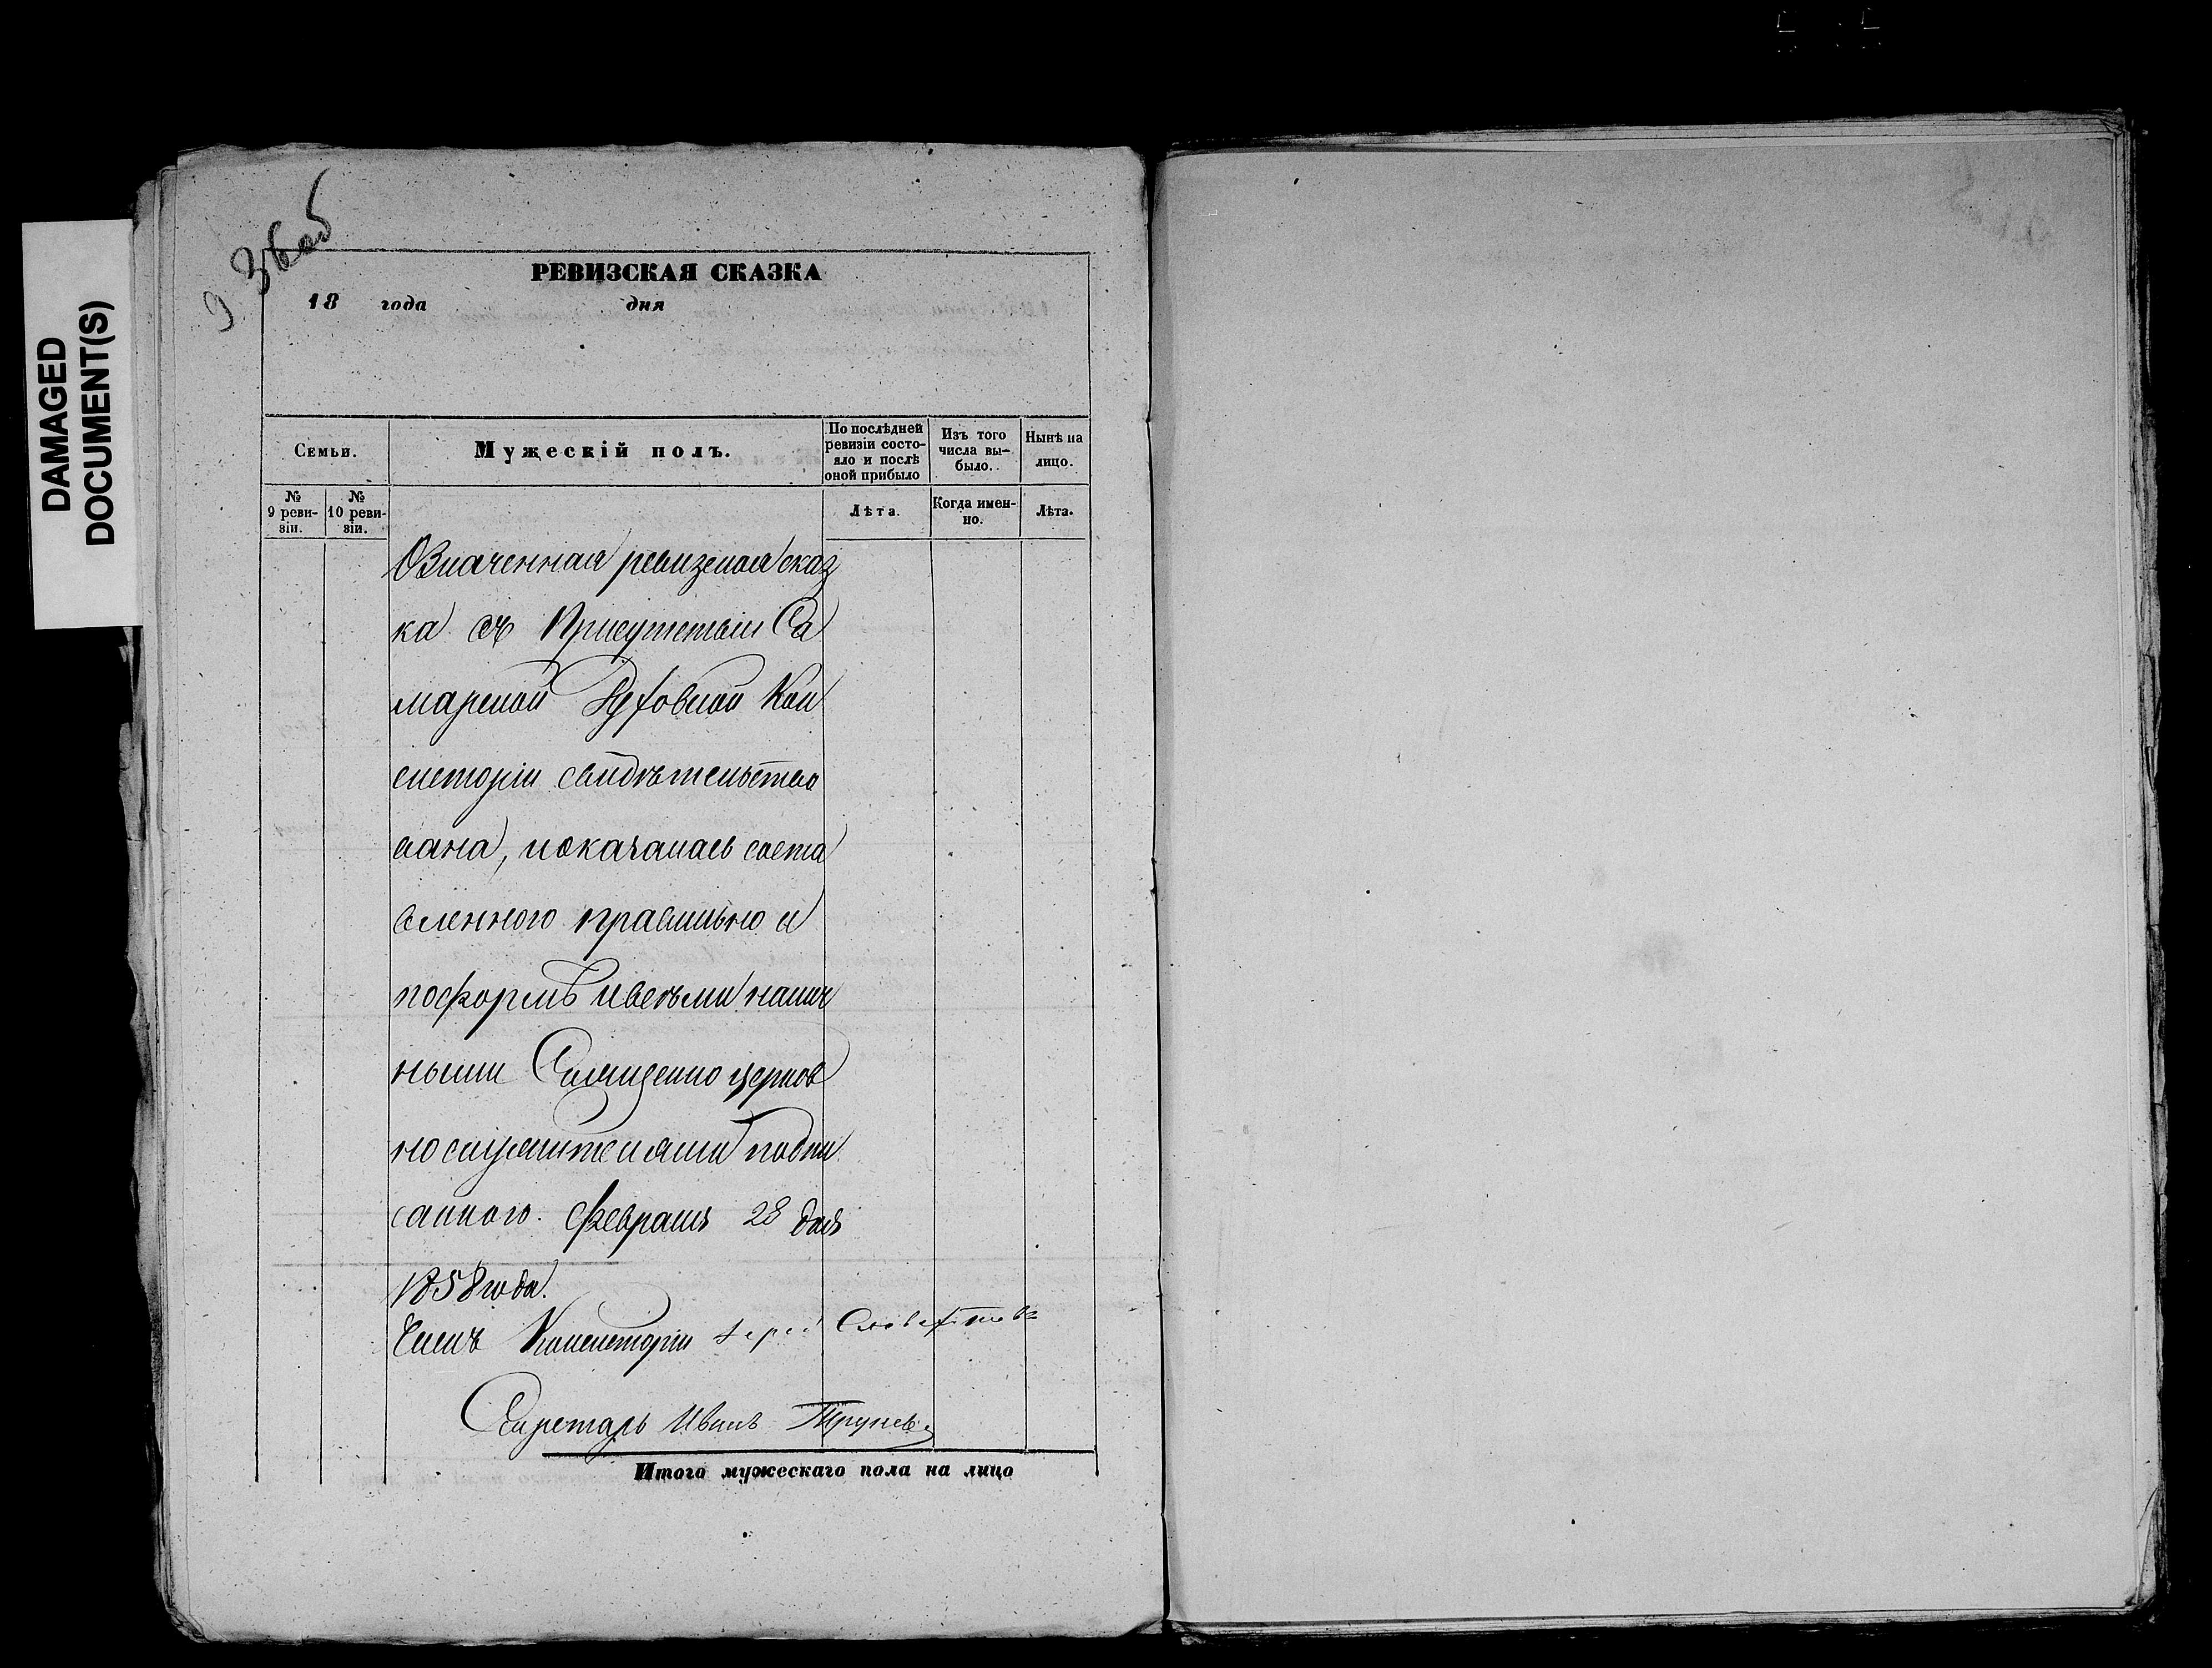 DAMAGED
DOCUMENT(S)
36 об
РЕВИЗСКАЯ СКАЗКА
18 года дня
Семьи.
Мужескій полъ.
По послѣдней
ревизіи состо-
яло и послѣ
оной прибыло
Изъ того
числа вы-
было.
Нынѣ на
лицо.
№
9 реви-
зіи.
№
10 реви-
зіи.
Лѣта.
Когда имен-
но.
Лѣта.
Означенная ревизская сказ
ка въ Присутствіи Са
марской Духовной Кон
систоріи свидѣтельство
вана, и оказалась соста
вленного правильно и
по формѣ и всѣми налич
ными Священно церков
но служителями подпи
санного. Февраля 28 дня
1858 года.
Членъ Консисторіи Іерей
Секретарь Иванъ
Итого мужескаго пола на лицо